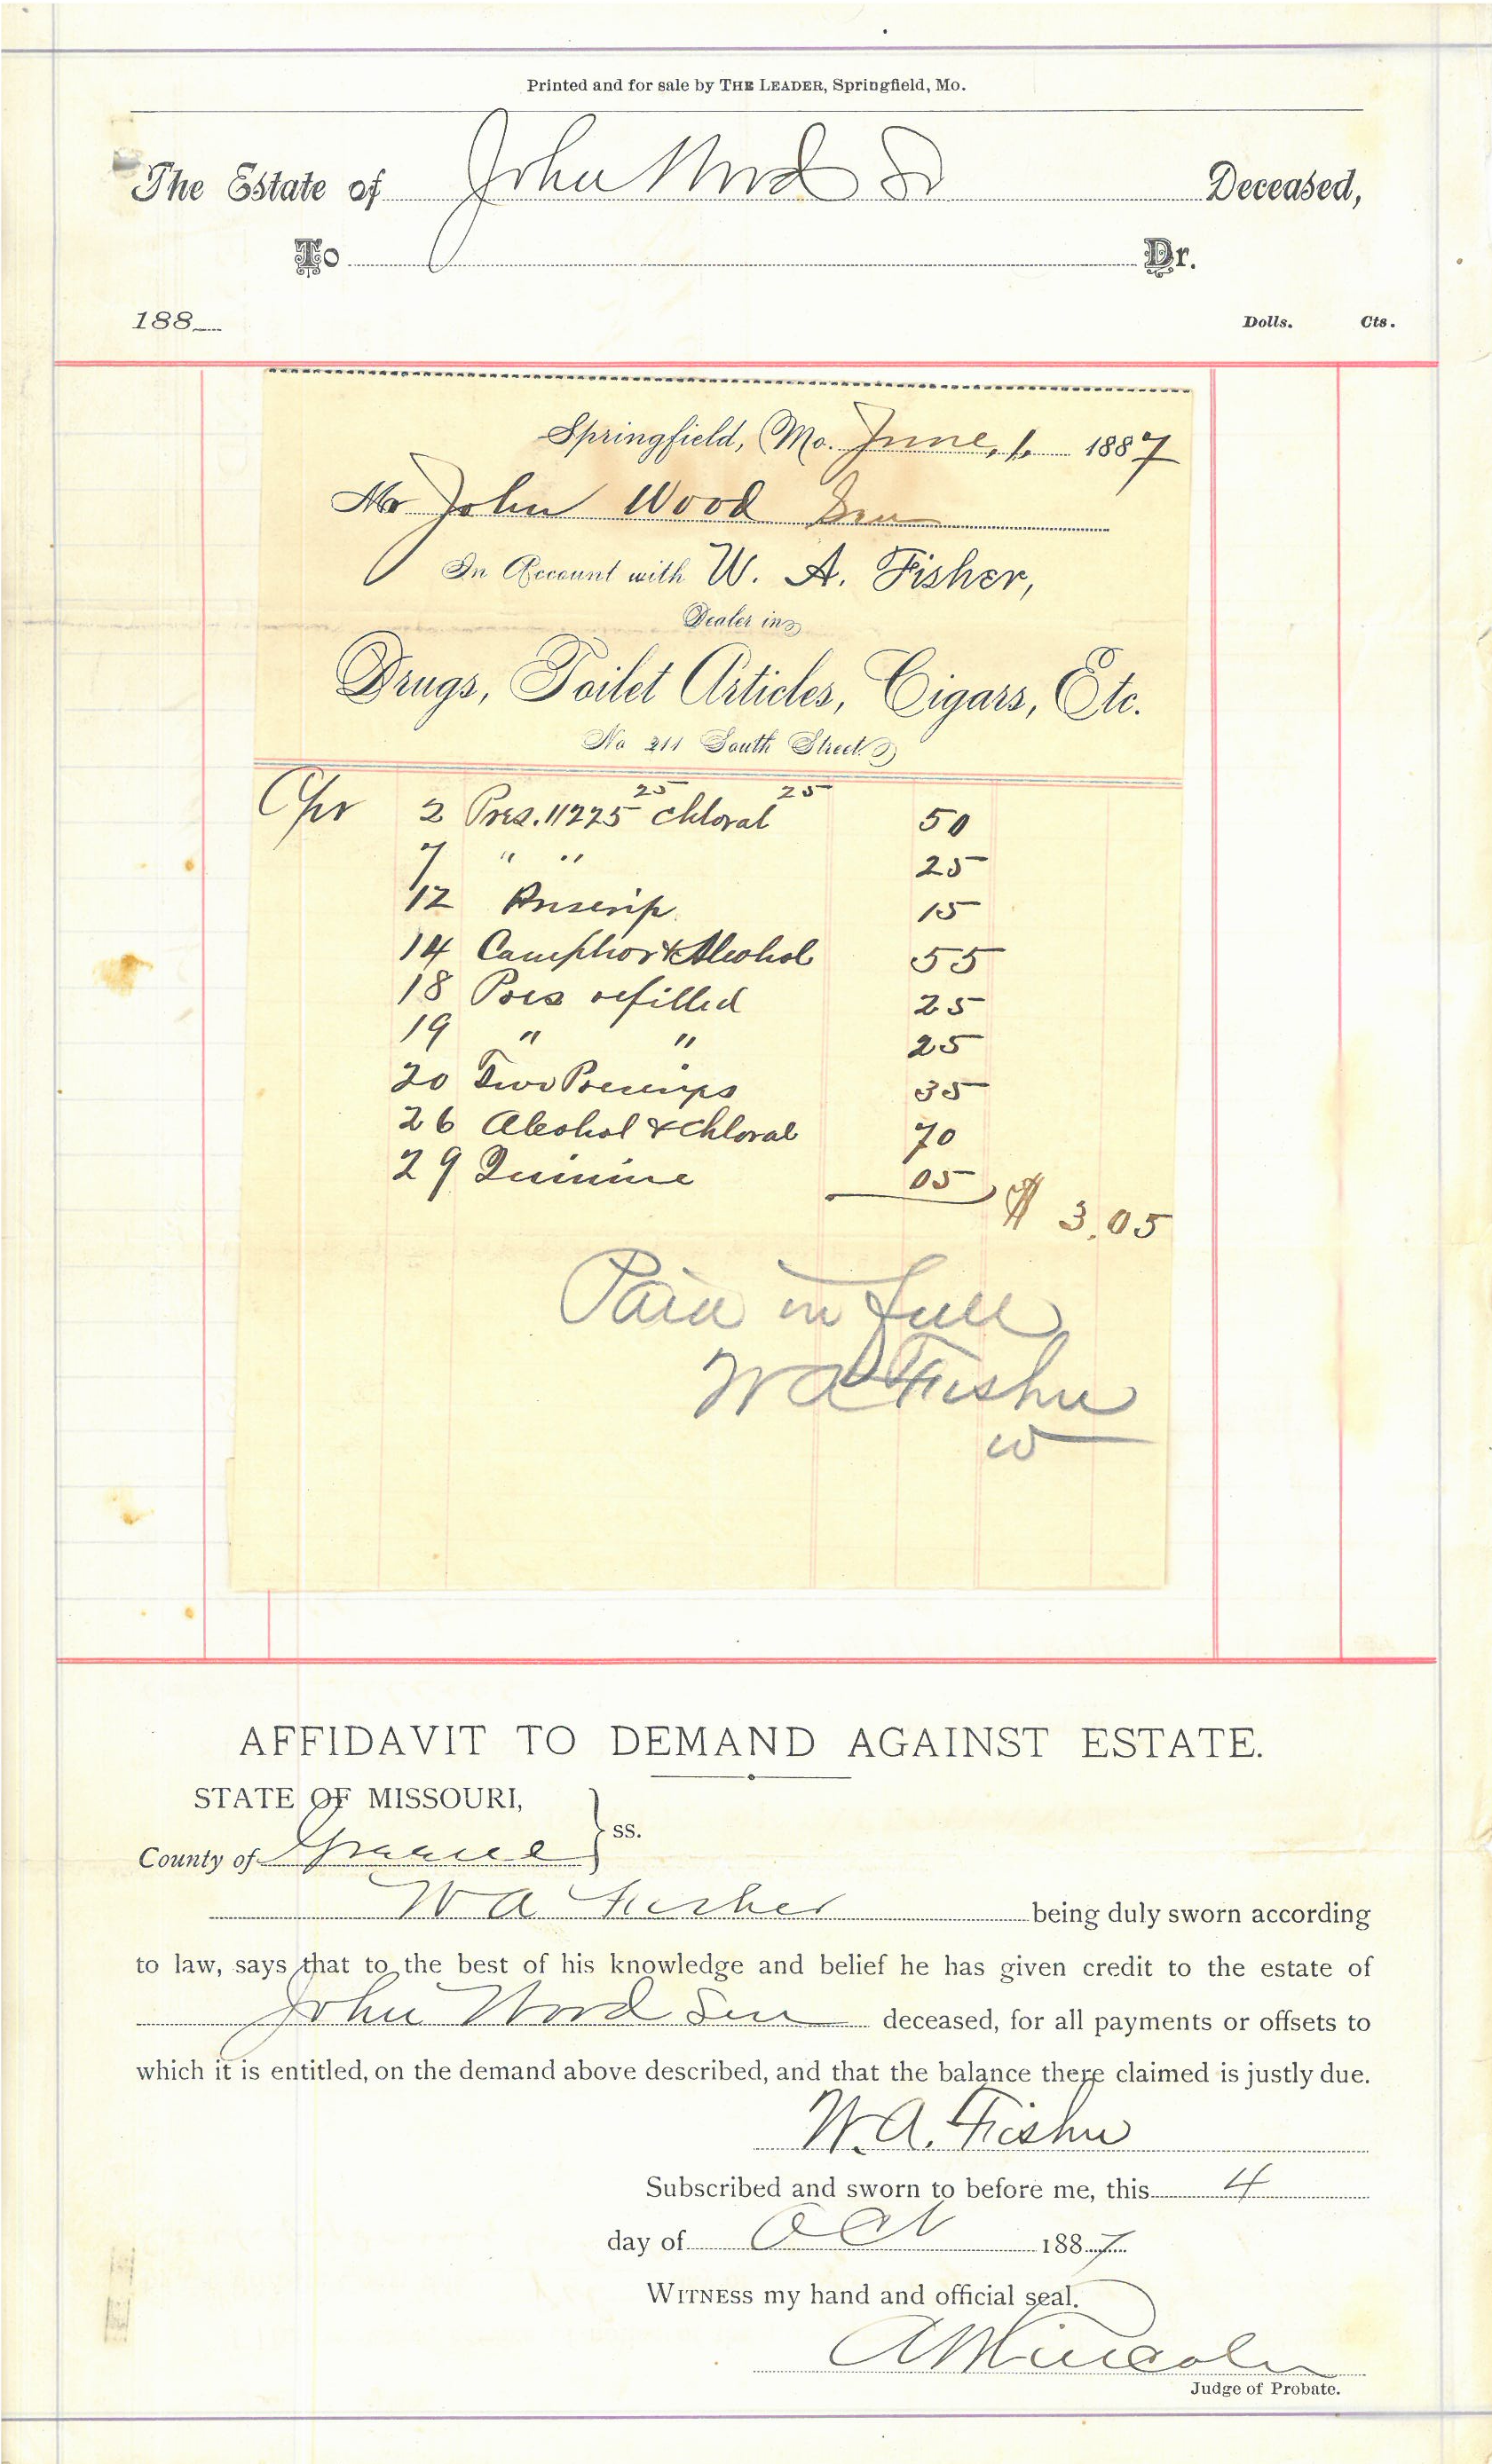 Printed and for sale by THE LEADER, Springfield, Mo.
The Estate of John Wood Sr Deceased,
To Dr.
188 Dolls. Cts.
Springfield, Mo. June, 1. 1887
Mr John Wood Sen
In Account with W. A. Fisher,
Dealer in
Drugs, Toilet Articles, Cigars, Etc.
No 211 South Street.
25 25
Apr 2 Pres. 11225 Chloral 50
7 " " 25
12 Prescrip. 15
14 Camphor & Alcohol 55
18 Pres refilled 25
19 " " 25
20 Two Prescrips 35
26 Alcohol & Chloral 70
29 Quinine 05
$ 3.05
Paid in full
W A Fisher
W
AFFIDAVIT TO DEMAND AGAINST ESTATE.
STATE OF MISSOURI,
County of Greene } ss.
W A Fisher being duly sworn according
to law, says that to the best of his knowledge and belief he has given credit to the estate of
John Wood Sen deceased, for all payments or offsets to
which it is entitled, on the demand above described, and that the balance there claimed is justly due.
W. A. Fisher
Subscribed and sworn to before me, this 4
day of Oct 1887
WITNESS my hand and official seal.
Lincoln
Judge of Probate.